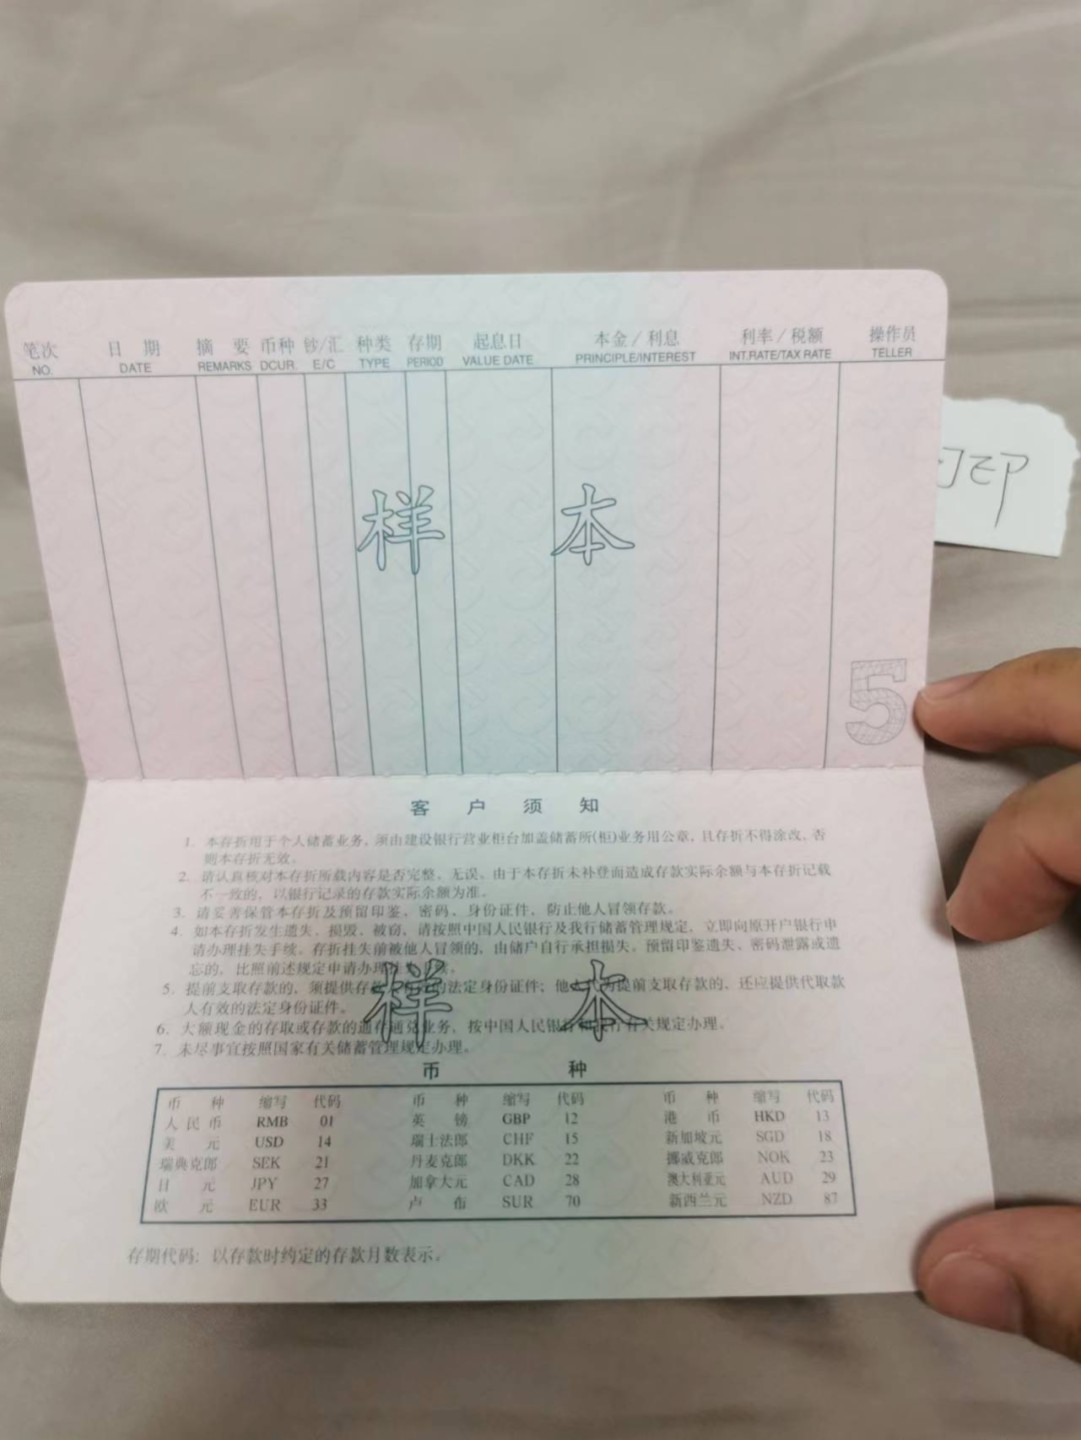 笔次 日 期 摘 要 币种 钞/汇 种类 存期 起息日 本金/利息 利率/税额 操作员
NO. DATE REMARKS DCUR. E/C TYPE PERIOD VALUE DATE PRINCIPLE/INTEREST INT.RATE/TAX RATE TELLER
样 本
5
客 户 须 知
1. 本存折用于个人储蓄业务，须由建设银行营业柜台加盖储蓄所(柜)业务用公章，且存折不得涂改，否
则本存折无效。
2. 请认真核对本存折所载内容是否完整、无误。由于本存折未补登而造成存款实际余额与本存折记载
不一致的，以银行记录的存款实际余额为准。
3. 请妥善保管本存折及预留印鉴、密码、身份证件，防止他人冒领存款。
4. 如本存折发生遗失、损毁、被窃，请按照中国人民银行及我行储蓄管理规定，立即向原开户银行申
请办理挂失手续。存折挂失前被他人冒领的，由储户自行承担损失。预留印鉴遗失、密码泄露或遗
忘的，比照前述规定申请办理挂失手续。
5. 提前支取存款的，须提供存款人有效的法定身份证件；他人代为提前支取存款的，还应提供代取款
人有效的法定身份证件。
6. 大额现金的存取或存款的通存通兑业务，按中国人民银行和我行有关规定办理。
7. 未尽事宜按照国家有关储蓄管理规定办理。
样 本
币 种
币 种 缩写 代码 币 种 缩写 代码 币 种 缩写 代码
人民币 RMB 01 英 镑 GBP 12 港 币 HKD 13
美 元 USD 14 瑞士法郎 CHF 15 新加坡元 SGD 18
瑞典克郎 SEK 21 丹麦克郎 DKK 22 挪威克郎 NOK 23
日 元 JPY 27 加拿大元 CAD 28 澳大利亚元 AUD 29
欧 元 EUR 33 卢 布 SUR 70 新西兰元 NZD 87
存期代码：以存款时约定的存款月数表示。